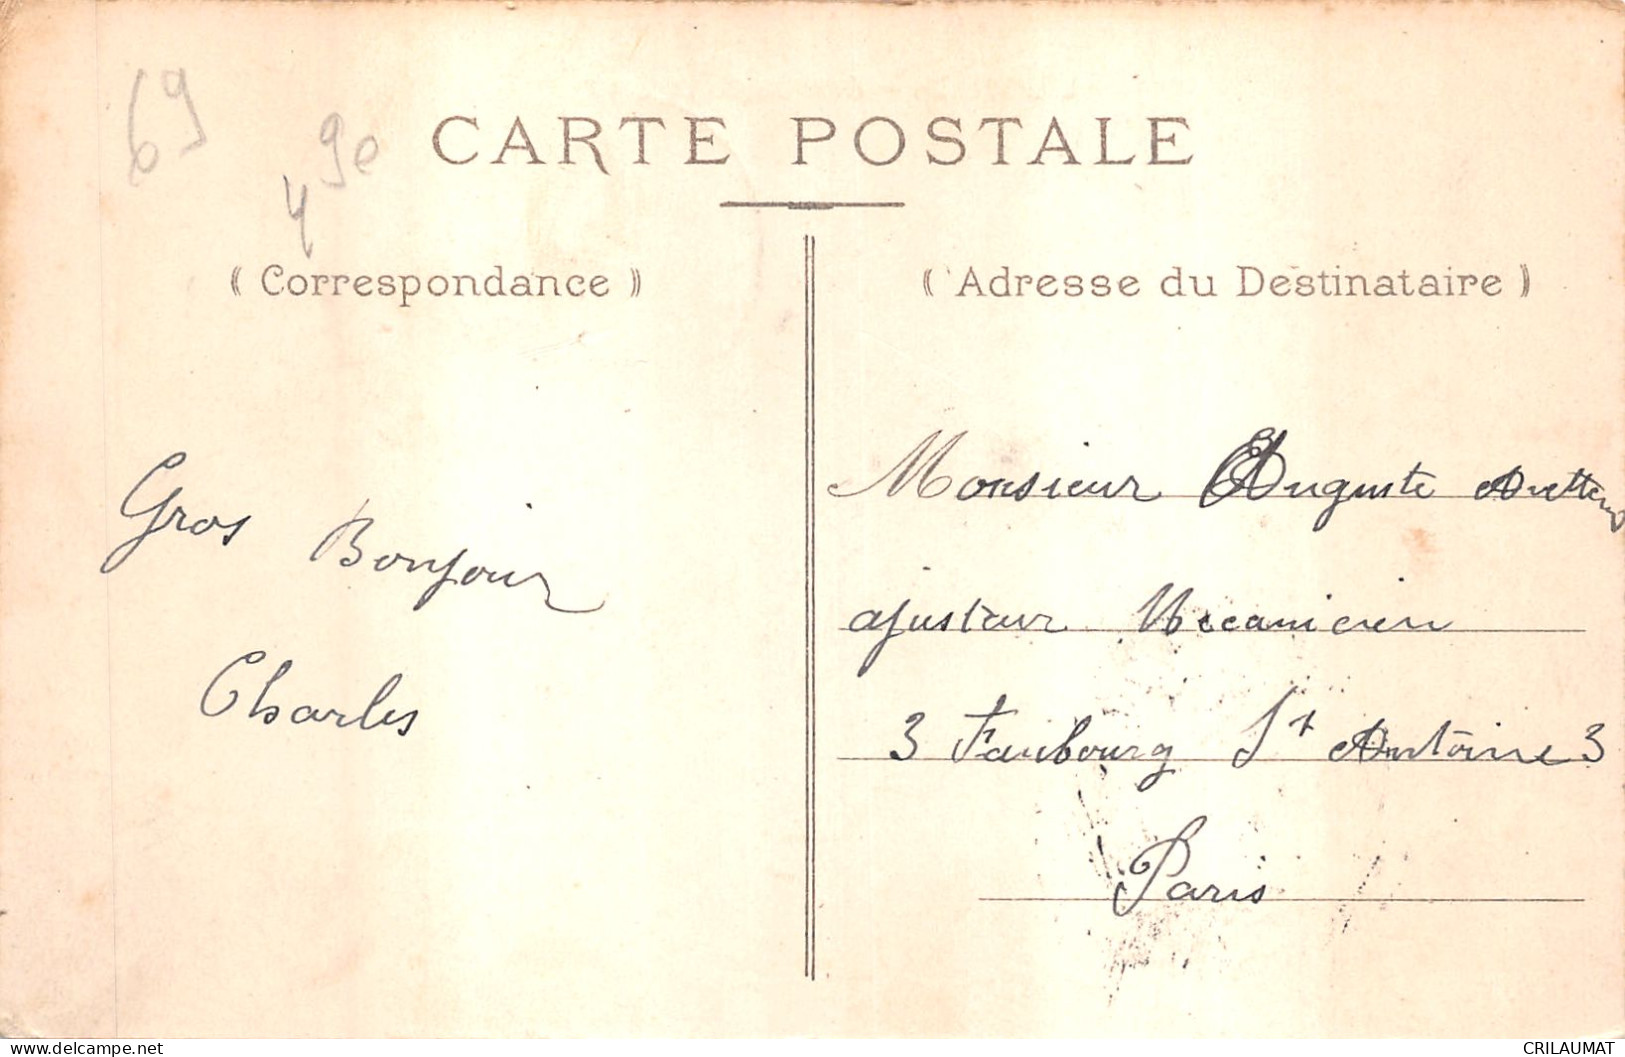 69
4 90
CARTE POSTALE
(Correspondance)
(Adresse du Destinataire)
Gros Bonjour
Charles
Monsieur Auguste
ajusteur Mecanicien
3 Faubourg St Antoine 3
Paris
www.delcampe.net
CRILAUMAT